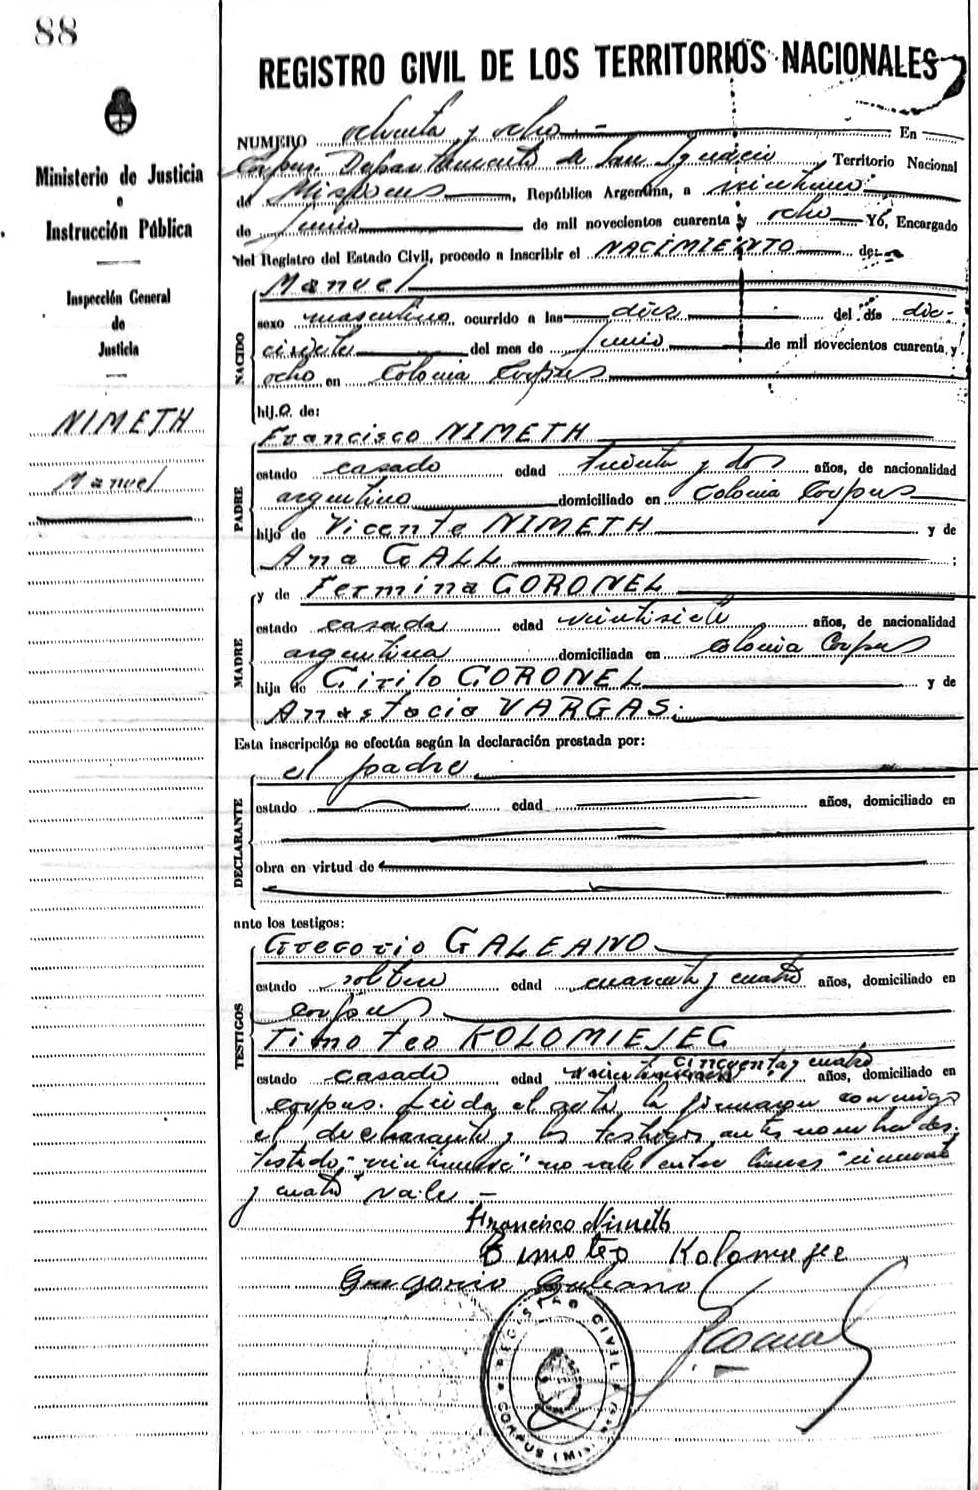 88
REGISTRO CIVIL DE LOS TERRITORIOS NACIONALES
Ministerio de Justicia
e
Instrucción Pública
Inspección General
de
Justicia
NIMETH
Manuel
NUMERO ochenta y ocho En
Corpus Departamento de San Ignacio, Territorio Nacional
de Misiones, República Argentina, a veintiuno
de junio de mil novecientos cuarenta y ocho Yó, Encargado
del Registro del Estado Civil, procedo a inscribir el NACIMIENTO de:
NACIDO
Manuel
sexo masculino, ocurrido a las diez del día die-
cisiete del mes de junio de mil novecientos cuarenta y
ocho en Colonia Corpus
hij.o. de:
PADRE
Francisco NIMETH
estado casado edad treinta y dos años, de nacionalidad
argentino domiciliado en Colonia Corpus
hijo de Vicente NIMETH y de
Ana GALL ;
MADRE
y de Fermina CORONEL
estado casada edad veintisiete años, de nacionalidad
argentina domiciliada en Colonia Corpus
hija de Cirilo CORONEL y de
Anastacia VARGAS;
Esta inscripción se efectúa según la declaración prestada por:
DECLARANTE
el padre
estado edad años, domiciliado en
obra en virtud de
ante los testigos:
TESTIGOS
Gregorio GALEANO
estado soltero edad cuarenta y cuatro años, domiciliado en
Corpus
Timoteo KOLOMIEJEC
cincuenta y cuatro
estado casado edad años, domiciliado en
Corpus. Leida el acta la firmaron conmigo
el declarante y los testigos antes nombrados.
Testado: "veintinueve" no vale entre lineas "cincuenta
y cuatro" vale.-
Francisco Nimeth
Timoteo Kolomiejec
Gregorio Galeano
REGISTRO CIVIL
CORPUS (Mis